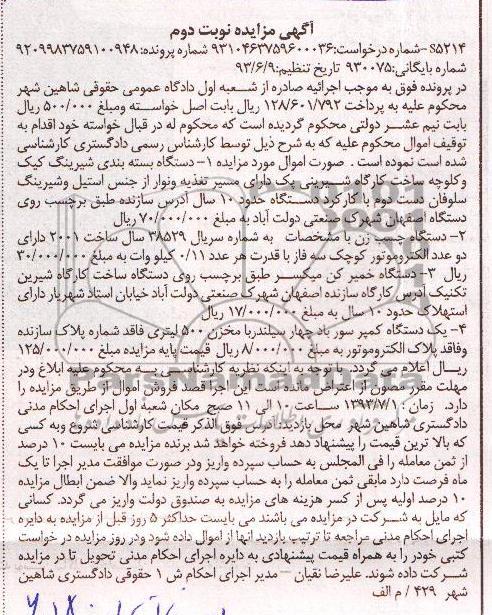 آگهی مزایده نوبت دوم
S5214 -شماره درخواست:9310463759600036 شماره پرونده: 9209983759100948
شماره بایگانی:930075 تاریخ تنظیم:93/6/9
در پرونده فوق به موجب اجرائیه صادره از شعبه اول دادگاه عمومی حقوقی شاهین شهر
محکوم علیه به پرداخت 128/601/792 ریال بابت اصل خواسته ومبلغ 500/000 ریال
بابت نیم عشر دولتی محکوم گردیده است که محکوم له در قبال خواسته خود اقدام به
توقیف اموال محکوم علیه که به شرح ذیل توسط کارشناس رسمی دادگستری کارشناسی
شده است نموده است . صورت اموال مورد مزایده 1- دستگاه بسته بندی شیرینگ کیک
وکلوچه ساخت کارگاه شیرینی پک دارای مسیر تغذیه ونوار از جنس استیل وشیرینگ
سلوفان دست دوم با کارکرد دستگاه حدود 10 سال آدرس سازنده طبق برچسب روی
دستگاه اصفهان شهرک صنعتی دولت آباد به مبلغ 70/000/000 ریال
2- دستگاه چسب زن با مشخصات به شماره سریال 38529 سال ساخت 2001 دارای
دو عدد الکتروموتور کوچک سه فاز با قدرت هر عدد 0/11 کیلو وات به مبلغ 30/000/000
ریال 3- دستگاه خمیر کن میکسر طبق برچسب روی دستگاه ساخت کارگاه شیرین
تکنیک آدرس کارگاه سازنده اصفهان شهرک صنعتی دولت آباد خیابان استاد شهریار دارای
استهلاک حدود 10 سال به مبلغ 17/000/000 ریال
4- یک دستگاه کمپر سور باد چهار سیلندر با مخزن 500 لیتری فاقد شماره پلاک سازنده
وفاقد پلاک الکتروموتور به مبلغ 8/000/000 ریال قیمت پایه مزایده مبلغ 125/000/000
ریال اعلام می گردد. با توجه به اینکه نظریه کارشناسی به محکوم علیه ابلاغ ودر
مهلت مقرر مصون از اعتراض مانده است این اجرا قصد فروش اموال از طریق مزایده را
دارد. زمان : 1393/7/10 ساعت 10 الی 11 صبح مکان شعبه اول اجرای احکام مدنی
دادگستری شاهین شهر محل بازدید: آدرس فوق الذکر قیمت کارشناسی شروع وبه کسی
که بالا ترین قیمت را پیشنهاد دهد فروخته خواهد شد برنده مزایده می بایست 10 درصد
از ثمن معامله را فی المجلس به حساب سپرده واریز ودر صورت موافقت مدیر اجرا تا یک
ماه فرصت دارد مابقی ثمن معامله را به حساب سپرده واریز نماید والا ضمن ابطال مزایده
10 درصد اولیه پس از کسر هزینه های مزایده به صندوق دولت واریز می گردد. کسانی
که مایل به شرکت در مزایده می باشند می بایست حداکثر 5 روز قبل از مزایده به دایره
اجرای احکام مدنی مراجعه تا ترتیب بازدید انها از اموال داده شود ودر روز مزایده در خواست
کتبی خودر را به همراه قیمت پیشنهادی به دایره اجرای احکام مدنی تحویل تا در مزایده
شرکت داده شوند. علیرضا نقیان – مدیر اجرای احکام ش 1 حقوقی دادگستری شاهین
شهر 429 / م الف